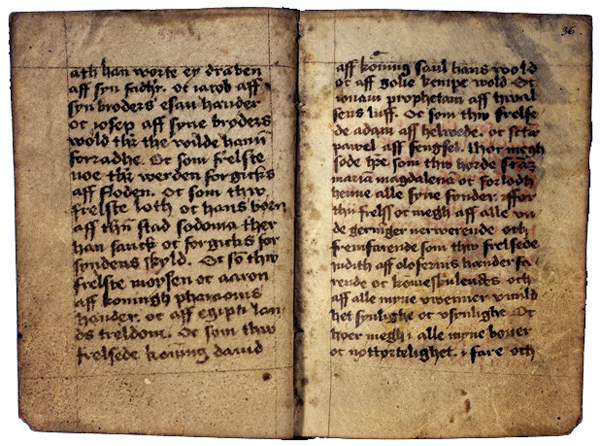 ath han worte ey dræben
aff syn fadhr. oc iacob aff
syn broders esau hænder
oc iosep aff syne brøders
wold thr the wilde hann
forradhe. Oc som frelste
noe thr werden forgicks
aff floden. Oc som thw
frelste loth oc hans børn
aff thn stad sodoma ther
han sanck oc forgicks for
syndens skyld. Oc so thw
frelste moysen oc aaron
aff koningh pharaonis
hænder. oc aff egipti lan
ds treldom. Oc som thw
frelsede koning dauid
36
aff koning saul hans wold
oc aff golie kempe wold Oc
ionam prophetam aff hwal
sens luff. Oc som thw frelse
de adam aff helwede. oc
pawel aff fengsel. Hør megh
søde som thw hørde
maria magdalena oc forlodh
henne alle syne synder.
thu frelss oc megh aff alle
de gerninger nerwerende och
fremfarende som thw frelsede
iudith aff olofernus hænder
rende oc och
aff alle myne vwenner
het synlighe oc vsynlighe Oc
hør megh i alle myne bøner
oc nøttyrtelighet. i fare och